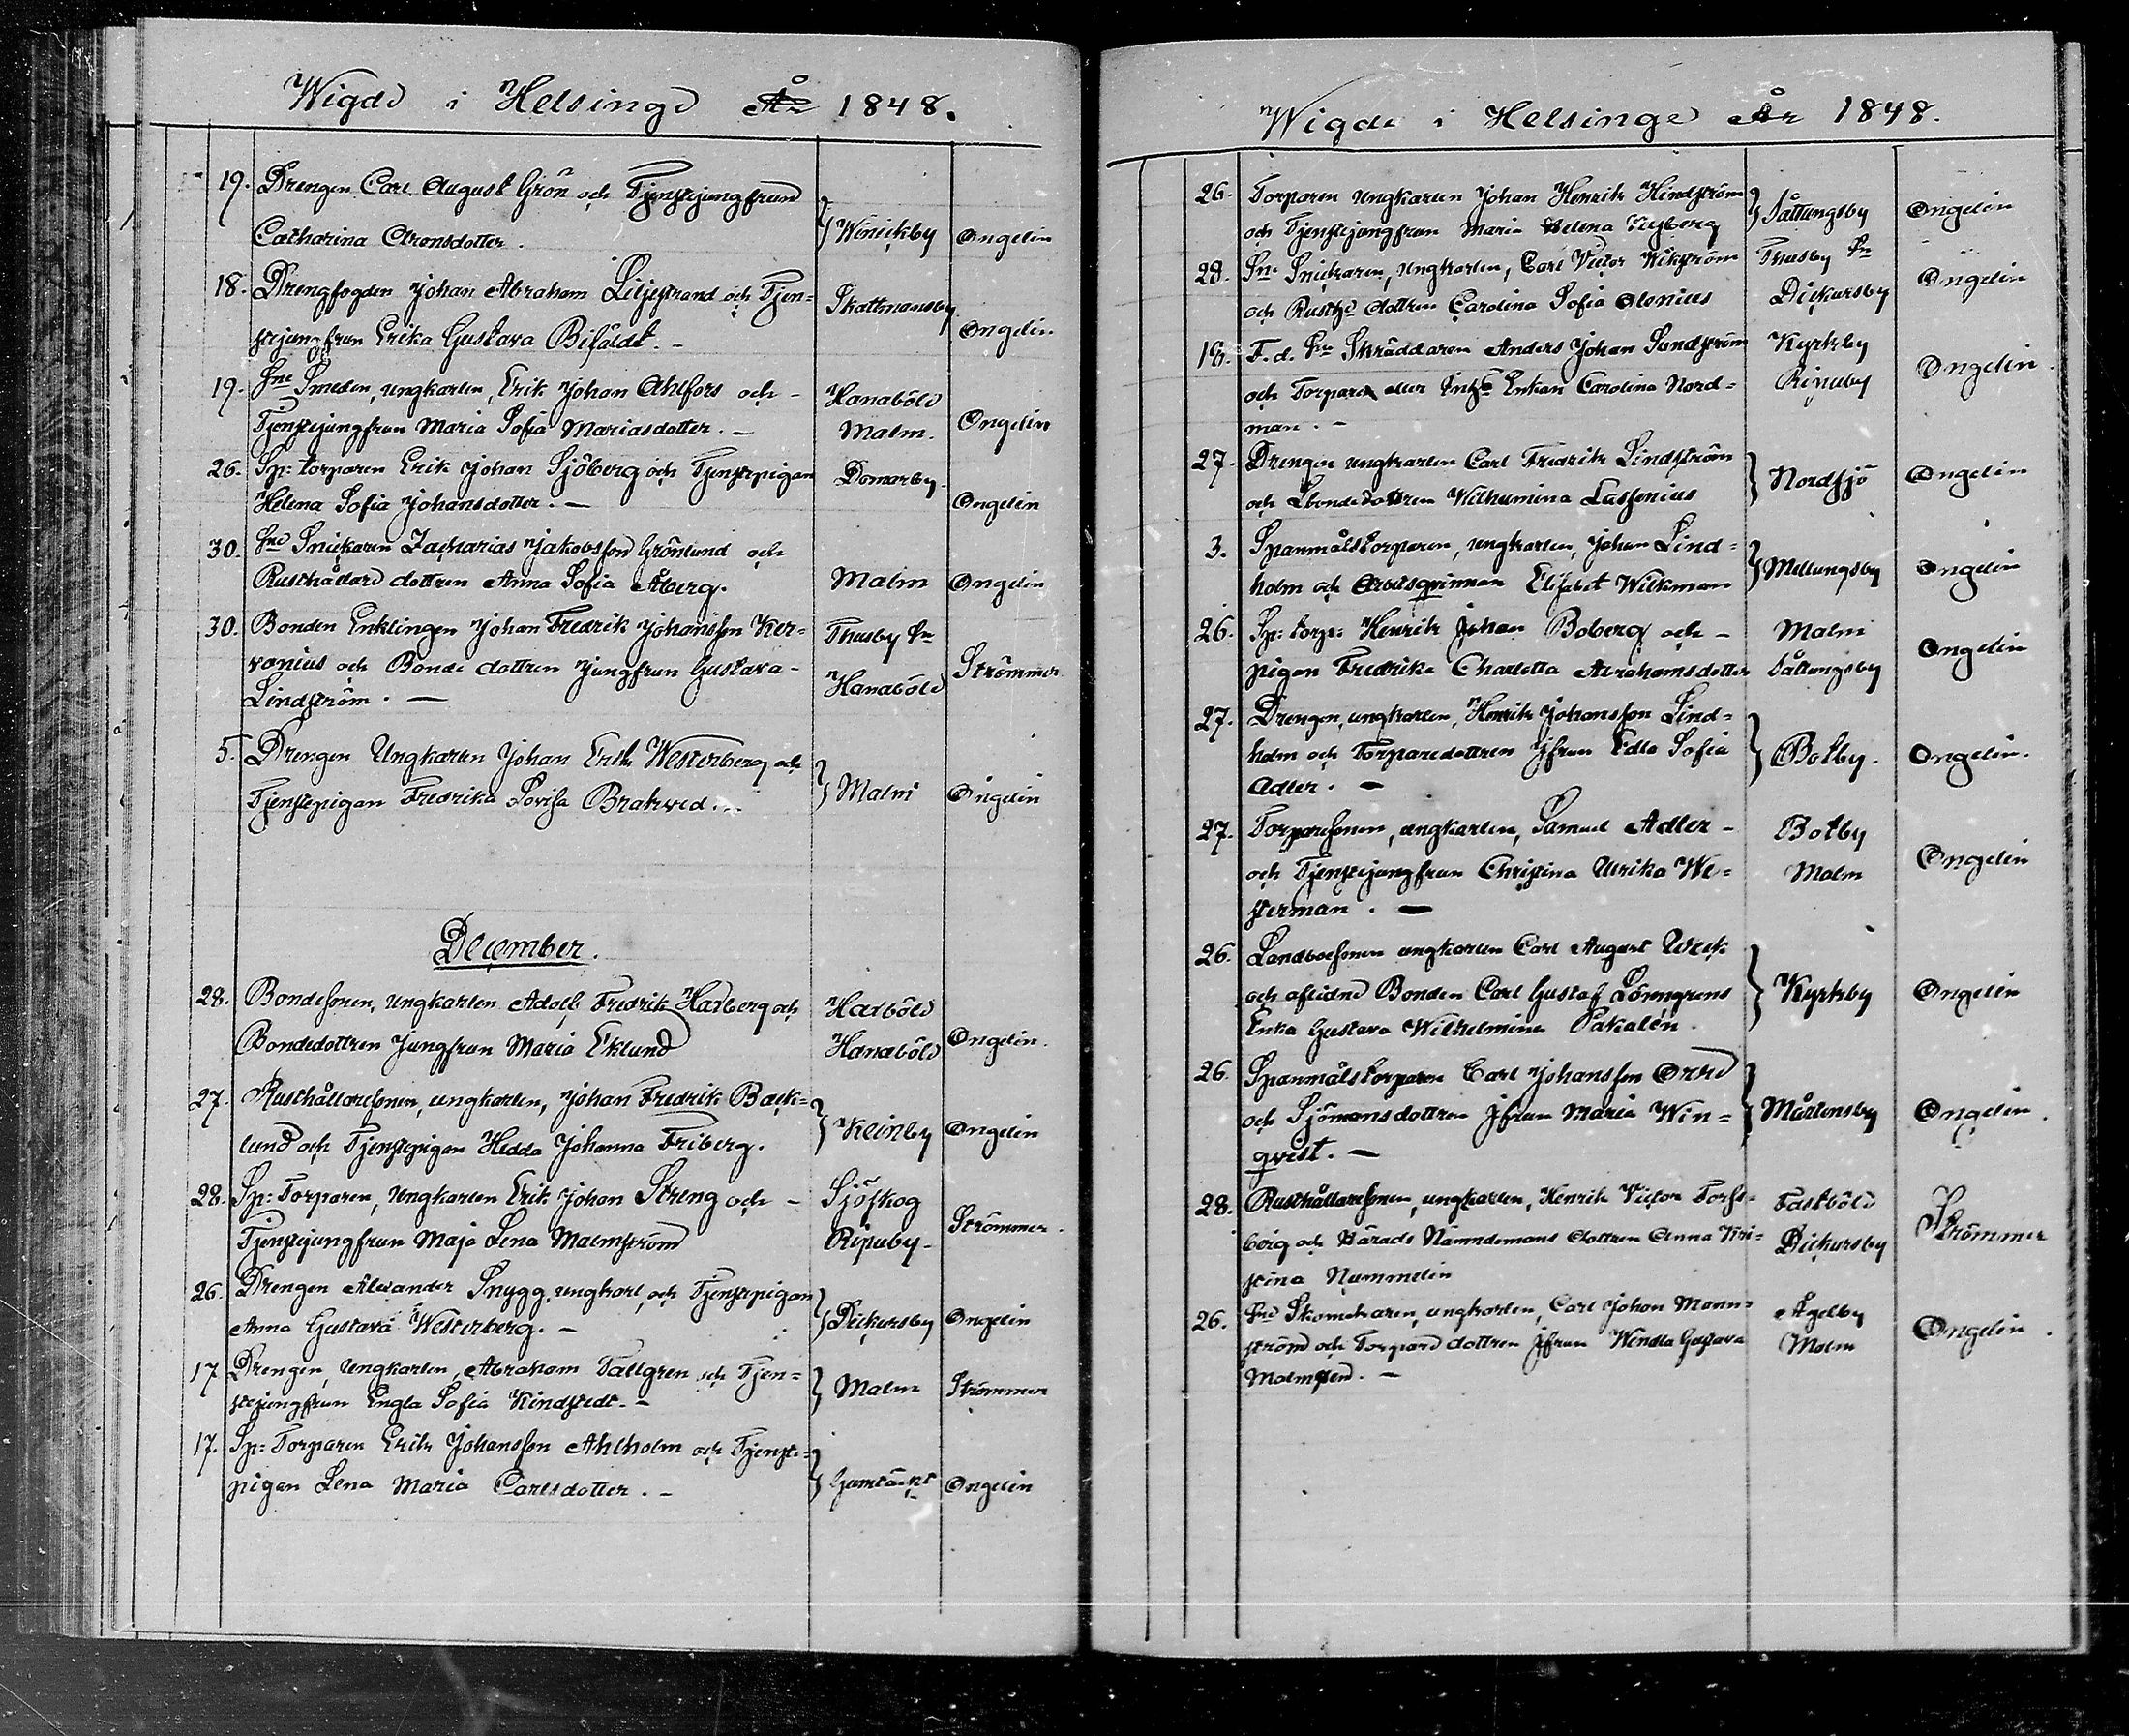 Wigde i Helsinge År 1848.
19. Drengen Carl August Grön och Tjenstejungfrun
Catharina Aronsdotter. Winickby Ongelin
18. Drengfogden Johan Abraham Liljestrand och Tjen=
stejungfrun Erika Gustava Bifäldt. – Skattmansby Ongelin
19. Sne Smeden, ungkarlen, Erik Johan Ahlfors och – Hanaböle
Tjenstejungfrun Maria Sofia Mariasdotter. – Malm. Ongelin
26. Sp: torparen Erik Johan Sjöberg och Tjenstepigan Domarby
Helena Sofia Johansdotter. – Ongelin
30. Sne Snickaren Zacharias Jakobsson Grönlund och
Rusthådare dottren Anna Sofia Åberg. Malm Ongelin
30. Bonden Enklingen Johan Fredrik Johansson Ker= Thusby Sn
vonius och Bonde dottren Jungfrun Gustava – Strömmer
Lindström. – Hanaböle
5. Drengen Ungkarlen Johan Erik Westerberg och
Tjenstepigan Fredrika Lovisa Brakved. – Malm Ongelin
December.
28. Bondesonen, Ungkarlen Adolf Fredrik Haxberg och Haxböle
Bondedottren Jungfrun Maria Eklund Hanaböle Ongelin.
27. Rusthållaresonen, ungkarlen, Johan Fredrik Back=
lund och Tjenstepigan Hedda Johanna Friberg. Kleinby Ongelin
28. Sp: Torparen, Ungkarlen Erik Johan Streng och – Sjöskog
Tjenstejungfrun Maja Lena Malmström Ripuby – Strömmer
26. Drengen Alexander Snygg, ungkarl, och Tjenstepigan
Anna Gustava Westerberg. – Dickursby Ongelin
17 Drengen, Ungkarlen, Abraham Tallgren och Tjen=
stejungfrun Engla Sofia Kindstedt. – Malm Strömmer
17. Sp: Torparen Erik Johansson Ahlholm och Tjenste=
pigan Lena Maria Carlsdotter. – Gamtäckt Ongelin
Wigde i Helsinge År 1848.
26. Torparen Ungkarlen Johan Henrik Hindström
och Tjenstejungfrun Maria Helena Nyberg Såttungsby Ongelin
28. Sne Snickaren, Ungkarlen, Carl Victor Wikström Thusby Sn
och Rusth: dottren Carolina Sofia Alenius Dickursby Ongelin
18. F. d. Sne Skräddaren Anders Johan Sundström Kyrkby
och Torpare eller Enkan Carolina Nord= Ripuby Ongelin.
man. –
27. Drengen Ungkarlen Carl Fredrik Lindström
och Lbondedottren Wilhelmina Lassenius Nordsjö Ongelin
3. Spanmålstorparen, ungkarlen, Johan Lind=
holm och Arbetsqvinnan Elisabet Wilkman Mellungsby Ongelin
26. Sp: torp: Henrik Johan Boberg och – Malm
pigan Fredrika Charlotta Abrahamsdotter Såttungsby Ongelin
27. Drengen, ungkarlen, Henrik Johansson Lind=
holm och Torparedottren Jfrun Edla Sofia Botby. Ongelin.
Adler. –
27. Torparesonen, ungkarlen, Samuel Adler – Botby
och Tjenstejungfrun Christina Ulrika We= Malm Ongelin
sterman. –
26. Landboesonen ungkarlen Carl August Weck
och aflidne Bonden Carl Gustaf Lönngrens Kyrkby Ongelin
Enka Gustava Wilhelmina Pakalén.
26. Spanmålstorparen Carl Johansson Orre
och Sjömansdottren Jfrun Maria Win= Mårtensby Ongelin.
qvist. –
28. Rusthållaresonen, ungkarlen, Henrik Victor Forss= Fastböle
berg och Härads Nämndemans dottren Anna Kri= Dickursby Strömmer
stina Nummelin
26. Sne Skomakaren, ungkarlen, Carl Johan Mann= Agelby
ström och Torpare dottren Jfrun Wendla Gustava Malm Ongelin.
Malmsten. –